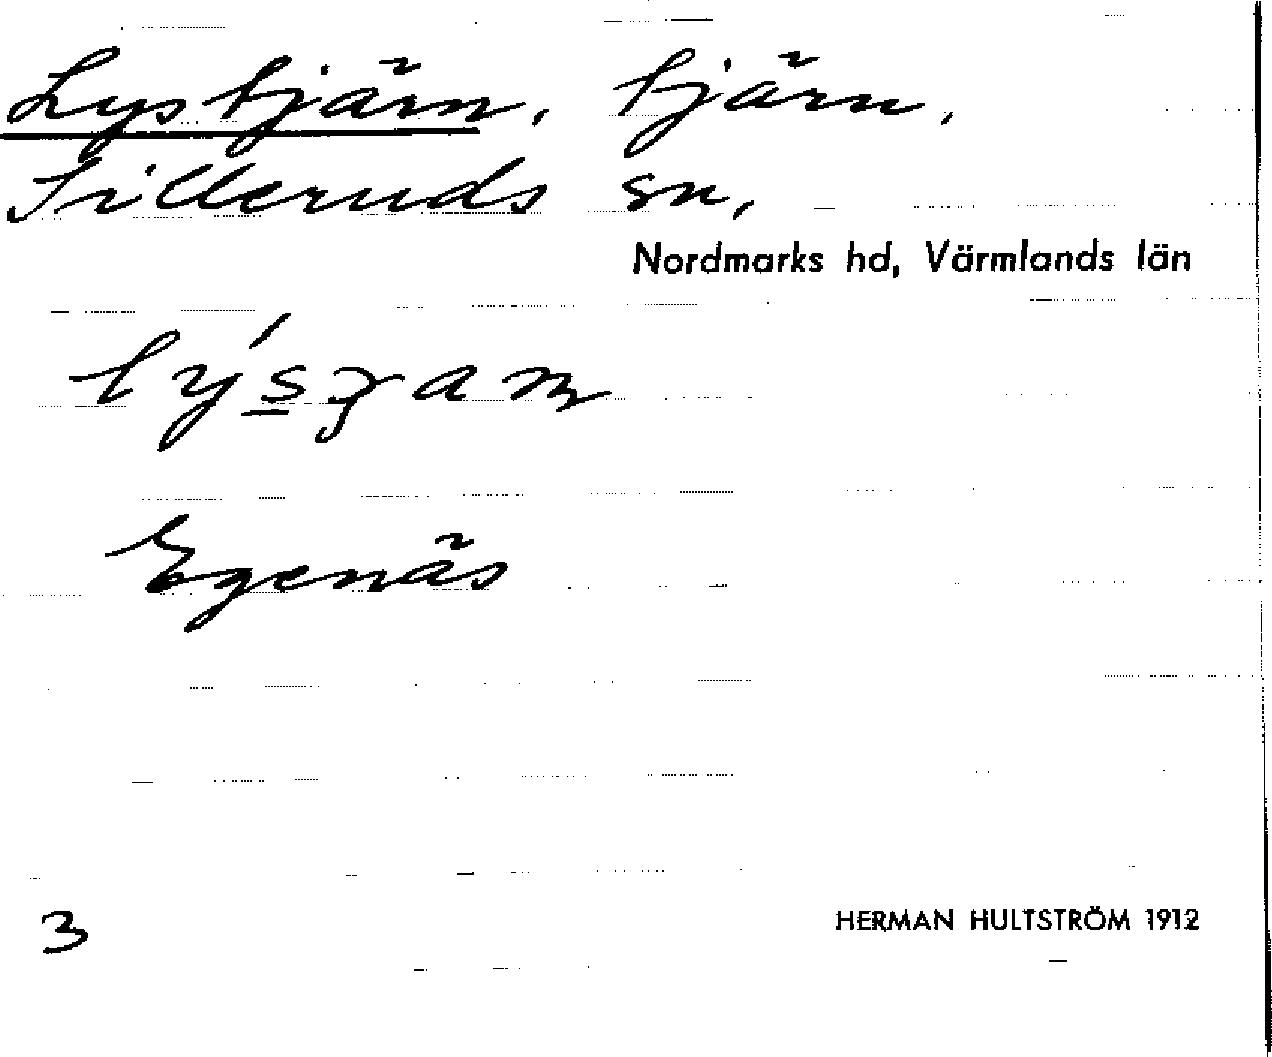 Lystjärn, tjärn,
Silleruds sn,
Nordmarks hd, Värmlands län
Egenäs
3 HERMAN HULTSTRÖM 1912